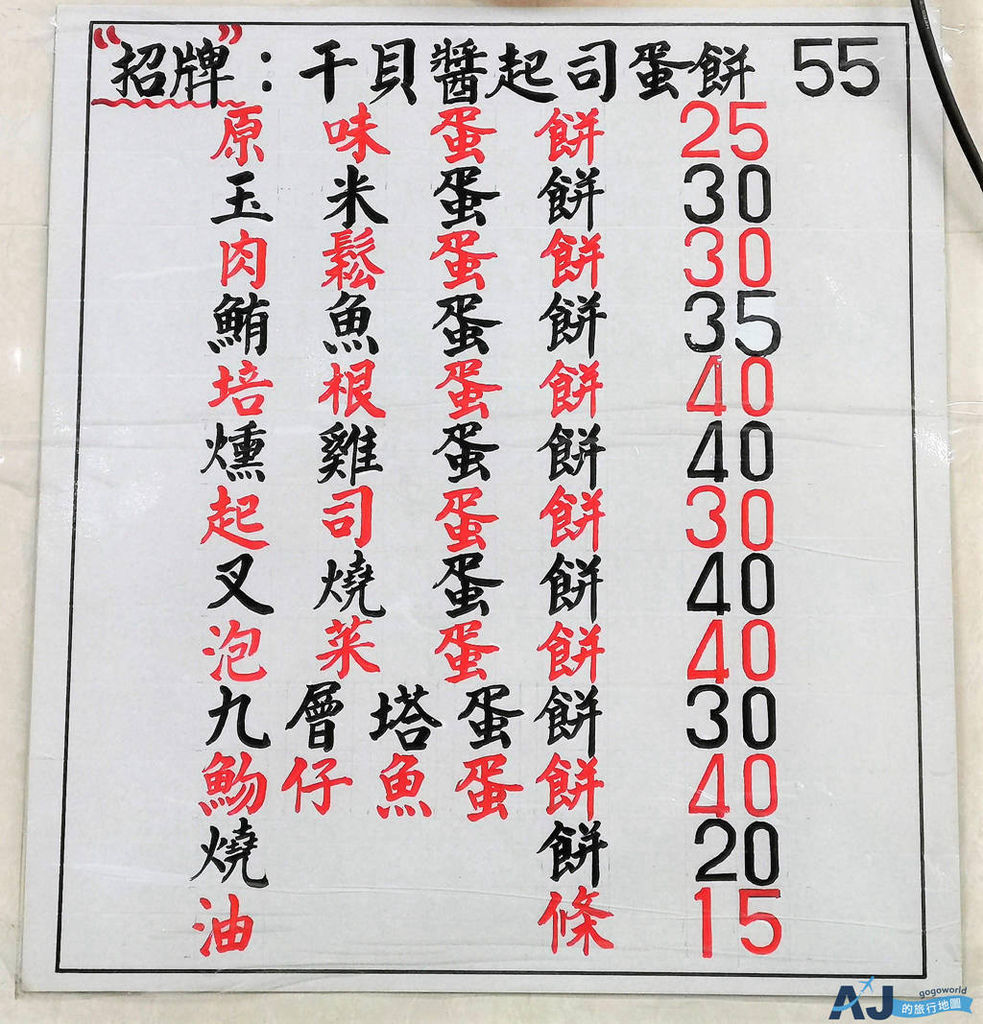 "招牌"：干貝醬起司蛋餅 55
原味蛋餅 25
玉米蛋餅 30
肉鬆蛋餅 30
鮪魚蛋餅 35
培根蛋餅 40
燻雞蛋餅 40
起司蛋餅 30
叉燒蛋餅 40
泡菜蛋餅 40
九層塔蛋餅 30
魩仔魚蛋餅 40
燒餅 20
油條 15
AJ gogoworld
的旅行地圖